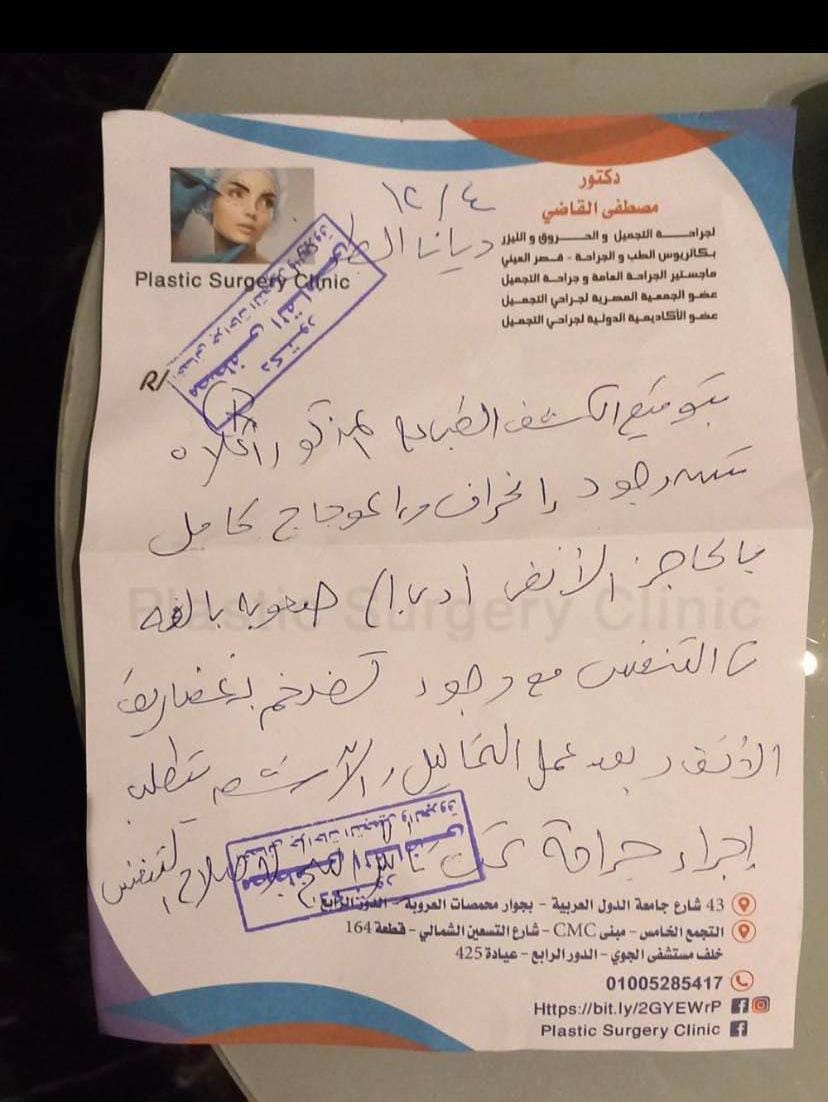 دكتور
مصطفى القاضي
لجراحة التجميل و الحروق و الليزر
بكالريوس الطب و الجراحة - قصر العيني
ماجستير الجراحة العامة و جراحة التجميل
عضو الجمعية المصرية لجراحي التجميل
عضو الأكاديمية الدولية لجراحي التجميل
Plastic Surgery Clinic
١٢/٤
ديانا
دكتور
مصطفى القاضي
R/
بتوقيع الكشف الطبي المذكور أعلاه
وجود انحراف واعوجاج كامل
بالحاجز الأنفى أدى إلى صعوبه بالغه
التنفس مع وجود تضخم بغضاريف
الأنف وبعد عمل التحاليل والأشعه يتطلب
إجراء جراحة تحت لإصلاح التنفس
Plastic Surgery Clinic
43 شارع جامعة الدول العربية - بجوار محمصات العروبة - الدور الرابع
التجمع الخامس - مبنى CMC - شارع التسعين الشمالي - قطعة 164
خلف مستشفى الجوي - الدور الرابع - عيادة 425
01005285417
Https://bit.ly/2GYEWrP
Plastic Surgery Clinic